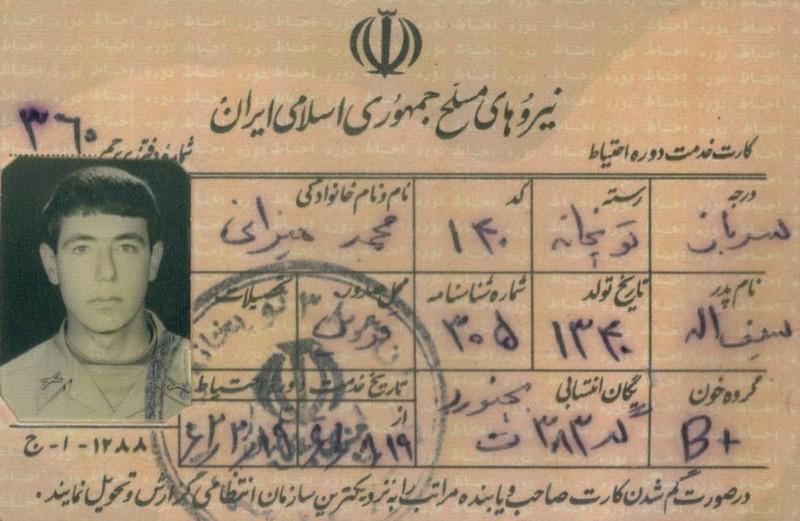 نیروهای مسلح جمهوری اسلامی ایران
کارت خدمت دوره احتیاط
شماره دفتر پرچم ۳۶۰
درجه رسته کد نام و نام خانوادگی
سرباز توپخانه ۱۴۰ محمد میزانی
نام پدر تاریخ تولد شماره شناسنامه محل صدور تحصیلات
سیف اله ۱۳۴۰ ۳۰۵
گروه خون یگان انتسابی بجنورد تاریخ خدمت دوره احتیاط
B+ گد ۳۸۳ ت از
۱۲۸۸-۱-ج
درصورت گم شدن کارت صاحب و یا بنده مراتب را به نزدیکترین سازمان انتظامی گزارش و تحویل نمایند.